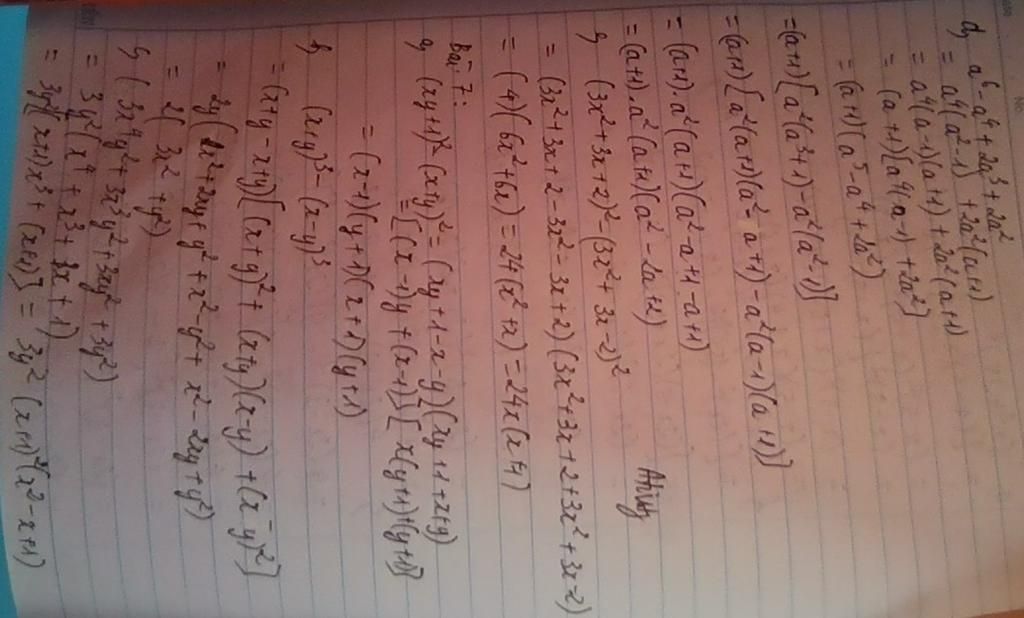 d) a⁶ - a⁴ + 2a³ + 2a²
= a⁴(a² - 1) + 2a²(a+1)
= a⁴(a-1)(a+1) + 2a²(a+1)
= (a+1)[a⁴(a-1) + 2a²]
= (a+1)(a⁵ - a⁴ + 2a²)
= (a+1)[a²(a³+1) - a²(a²-1)]
= (a+1)[a²(a+1)(a² - a+1) - a²(a-1)(a+1)]
= (a+1).a²(a+1)(a² - a+1 - a+1)
= (a+1).a²(a+1)(a² - 2a+2)
(3x²+3x+2)² - (3x²+3x-2)²
= (3x²+3x+2-3x²-3x+2)(3x²+3x+2+3x²+3x-2)
= (4)(6x²+6x) = 24(x²+x) = 24x(x+1)
Bài 7:
a) (xy+1)² - (x+y)² = (xy+1-x-y)(xy+1+x+y)
= [(x-1)y + (x-1)][x(y+1)+(y+1)]
= (x-1)(y+1)(x+1)(y+1)
b) (x+y)³ - (x-y)³
= (x+y-x+y)[(x+y)² + (x+y)(x-y) + (x-y)²]
= 2y(x²+2xy+y²+x²-y²+x²-2xy+y²)
= 2(3x²+y²)
c) (3x⁴y²+3x³y²+3xy²+3y²)
= 3y²(x⁴+x³+x+1)
= 3y²[(x+1)x³+(x+1)] = 3y²(x+1)²(x²-x+1)